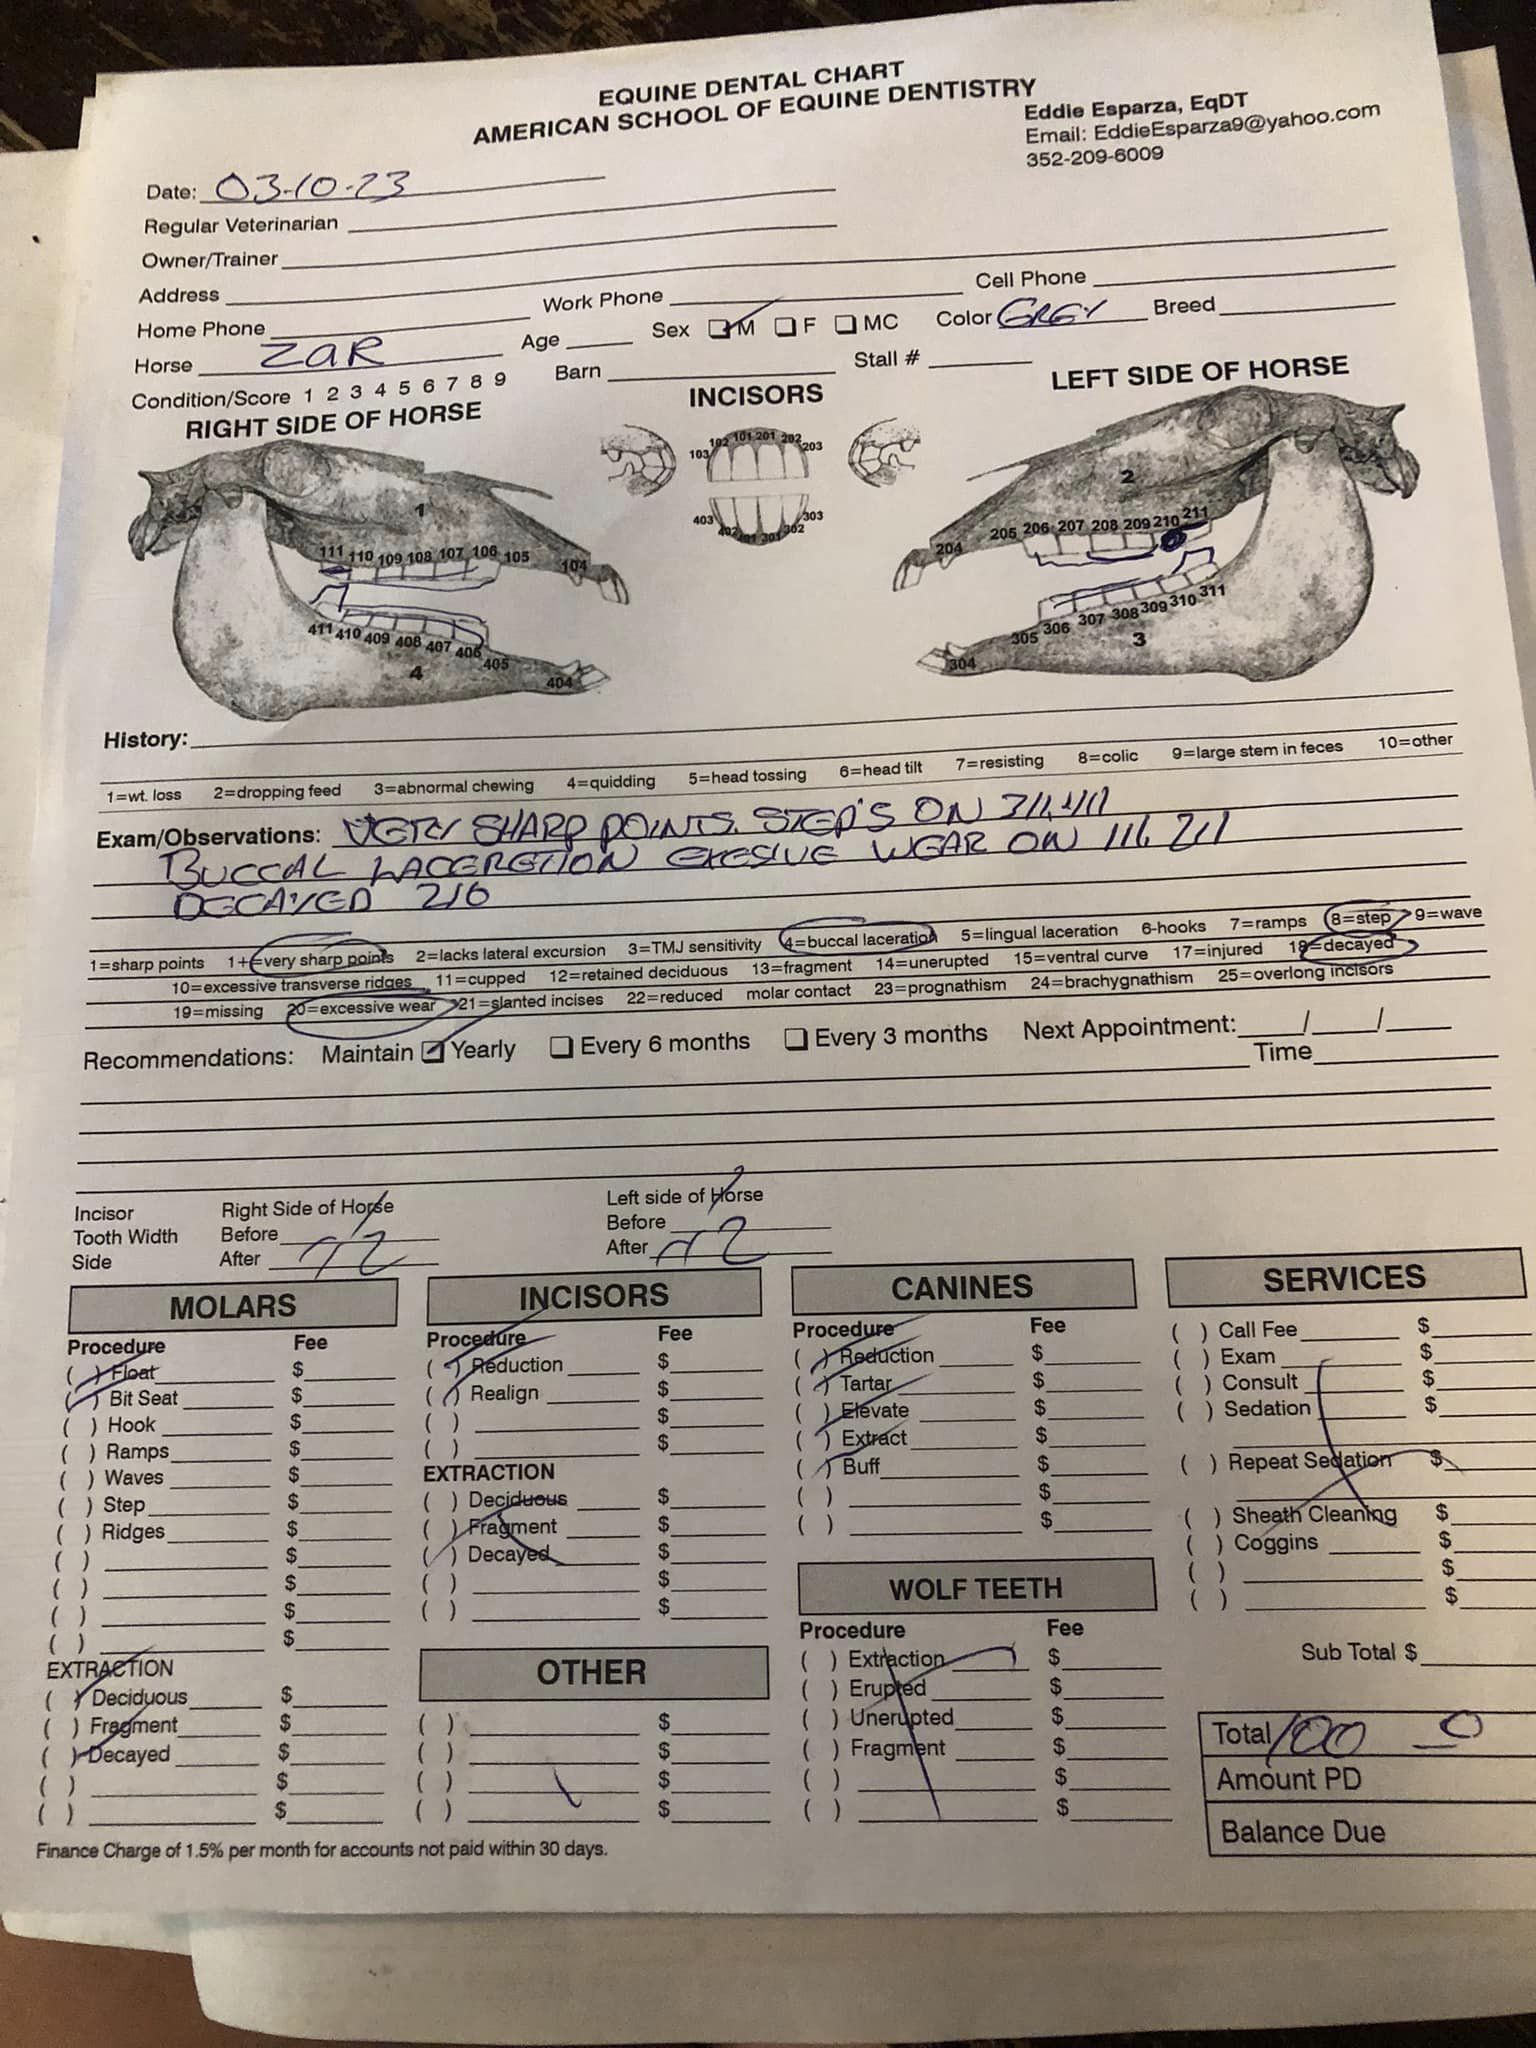 EQUINE DENTAL CHART
AMERICAN SCHOOL OF EQUINE DENTISTRY
Eddie Esparza, EqDT
Email: EddieEsparza9@yahoo.com
352-209-6009
Date: 03-10-23
Regular Veterinarian
Owner/Trainer
Address
Home Phone Work Phone Cell Phone
Horse ZaR Age Sex M F MC Color GREY Breed
Condition/Score 1 2 3 4 5 6 7 8 9 Barn Stall #
RIGHT SIDE OF HORSE INCISORS LEFT SIDE OF HORSE
103 102 101 201 202 203
403 402 401 301 302 303
1
111 110 109 108 107 106 105 104
411 410 409 408 407 406 405 404
4
2
204 205 206 207 208 209 210 211
304 305 306 307 308 309 310 311
3
History:
1=wt. loss 2=dropping feed 3=abnormal chewing 4=quidding 5=head tossing 6=head tilt 7=resisting 8=colic 9=large stem in feces 10=other
Exam/Observations: VERY SHARP POINTS. STEP'S ON 311, 411
BUCCAL LACERETION EXESIVE WEAR ON 111, 211
DECAYED 210
1=sharp points 1+=very sharp points 2=lacks lateral excursion 3=TMJ sensitivity 4=buccal laceration 5=lingual laceration 6-hooks 7=ramps 8=step 9=wave
10=excessive transverse ridges 11=cupped 12=retained deciduous 13=fragment 14=unerupted 15=ventral curve 17=injured 18=decayed
19=missing 20=excessive wear 21=slanted incises 22=reduced molar contact 23=prognathism 24=brachygnathism 25=overlong incisors
Recommendations: Maintain Yearly Every 6 months Every 3 months Next Appointment: / /
Time
Incisor Right Side of Horse Left side of Horse
Tooth Width Before Before
Side After After
MOLARS
Procedure Fee
( ) Float $
( ) Bit Seat $
( ) Hook $
( ) Ramps $
( ) Waves $
( ) Step $
( ) Ridges $
( ) $
( ) $
( ) $
( ) $
EXTRACTION
( ) Deciduous $
( ) Fragment $
( ) Decayed $
( ) $
( ) $
INCISORS
Procedure Fee
( ) Reduction $
( ) Realign $
( ) $
( ) $
EXTRACTION
( ) Deciduous $
( ) Fragment $
( ) Decayed $
( ) $
( ) $
OTHER
( ) $
( ) $
( ) $
( ) $
CANINES
Procedure Fee
( ) Reduction $
( ) Tartar $
( ) Elevate $
( ) Extract $
( ) Buff $
( ) $
( ) $
WOLF TEETH
Procedure Fee
( ) Extraction $
( ) Erupted $
( ) Unerupted $
( ) Fragment $
( ) $
( ) $
SERVICES
( ) Call Fee $
( ) Exam $
( ) Consult $
( ) Sedation $
( ) Repeat Sedation $
( ) Sheath Cleaning $
( ) Coggins $
( ) $
( ) $
Sub Total $
Total 100
Amount PD
Balance Due
Finance Charge of 1.5% per month for accounts not paid within 30 days.